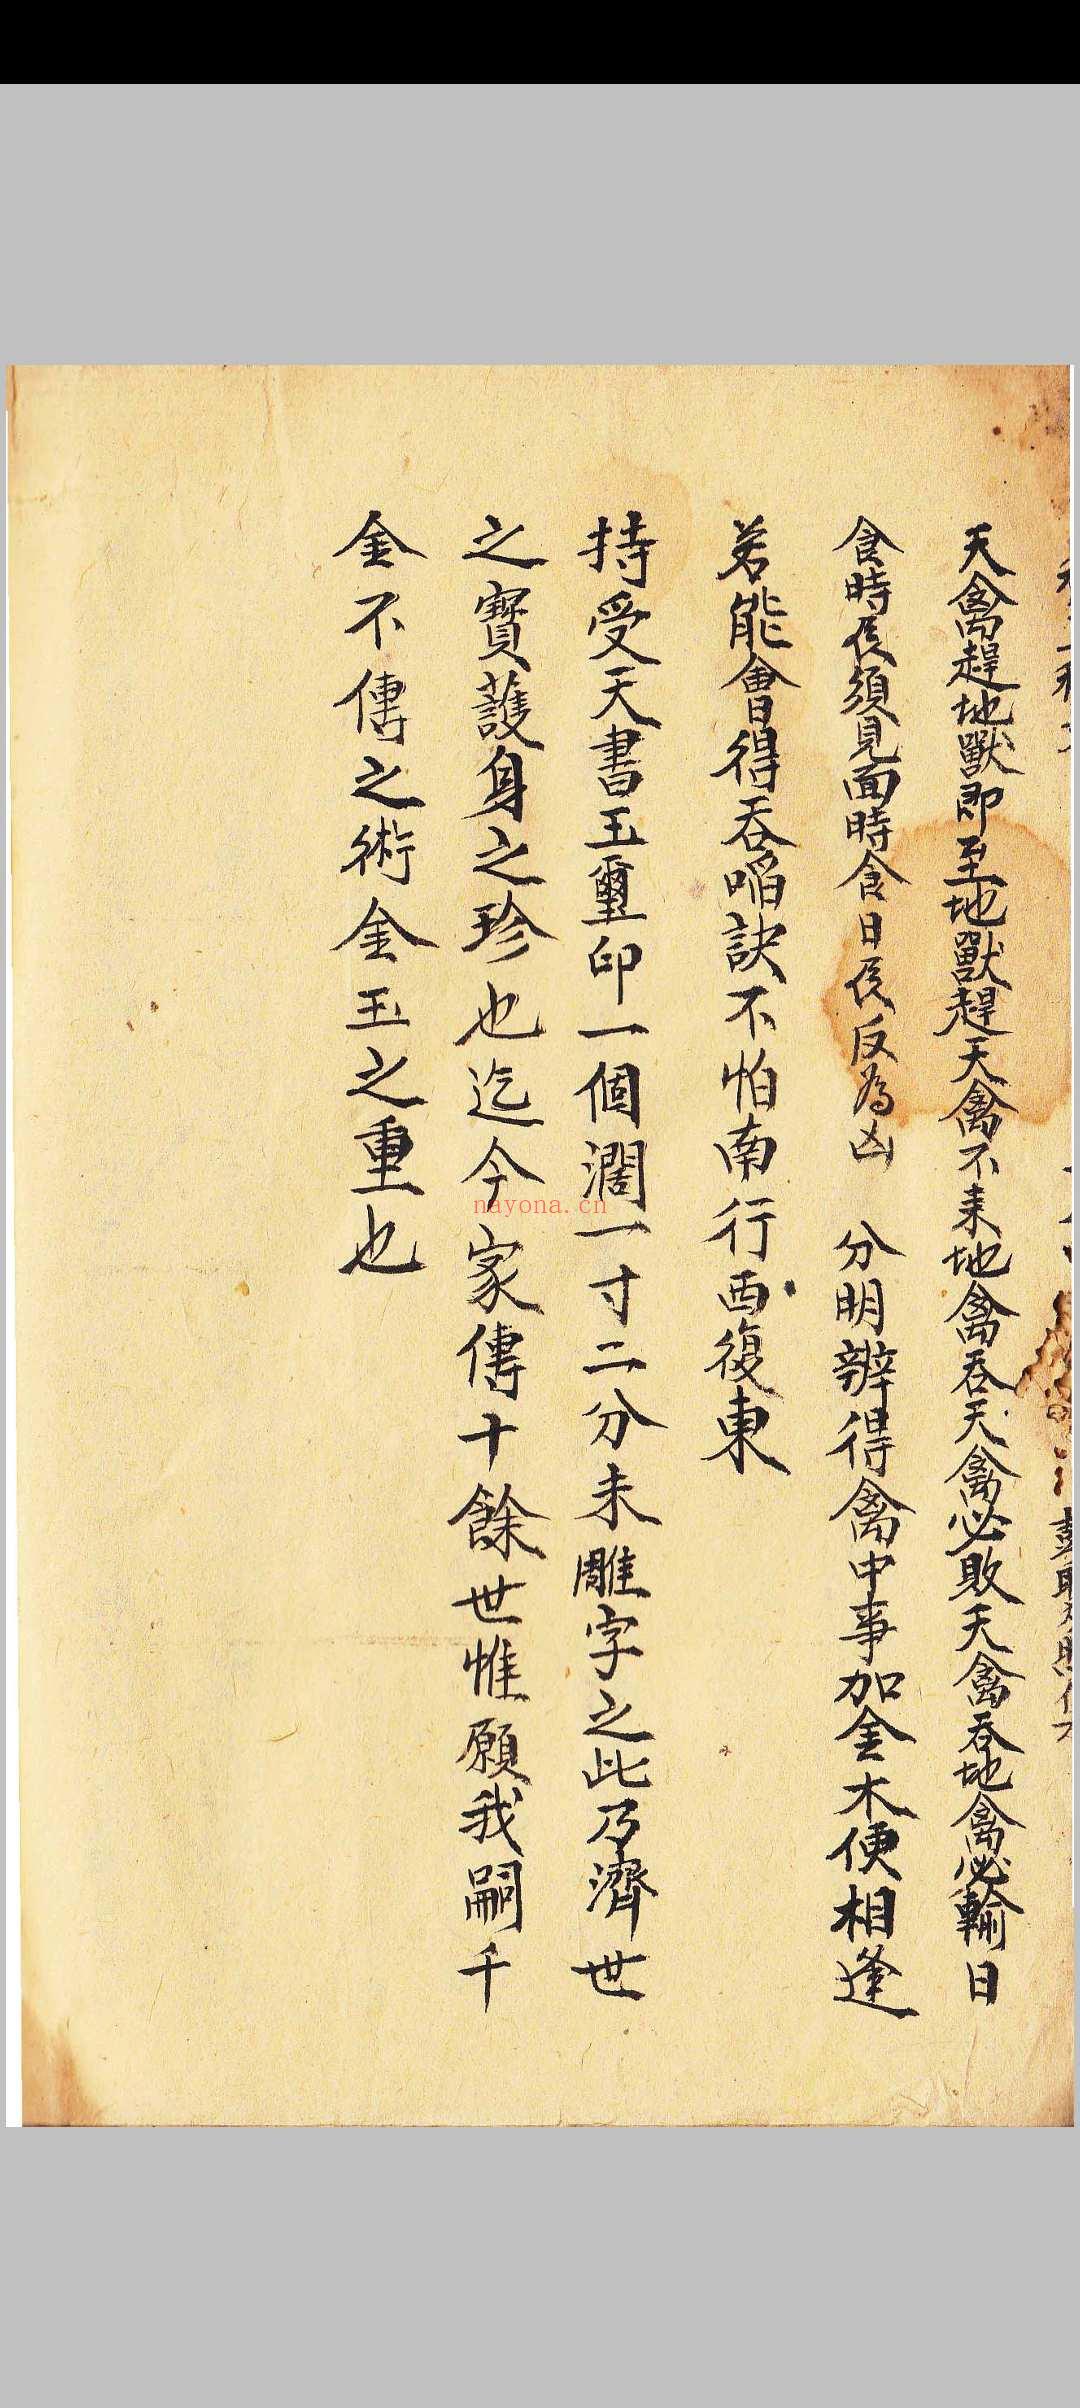 天禽趕地獸即至地獸趕天禽不来地禽吞天禽必敗天禽吞地禽必輸日
食時侯須見面時食日侯反為凶 分明辨得禽中事加金木便相逢
若能會得吞啗訣不怕南行西復東
持受天書玉璽印一個濶一寸二分未雕字之此乃濟世
之寳護身之珍也迄今家傳十餘世惟願我嗣千
金不傳之術金玉之重也
nayona.cn